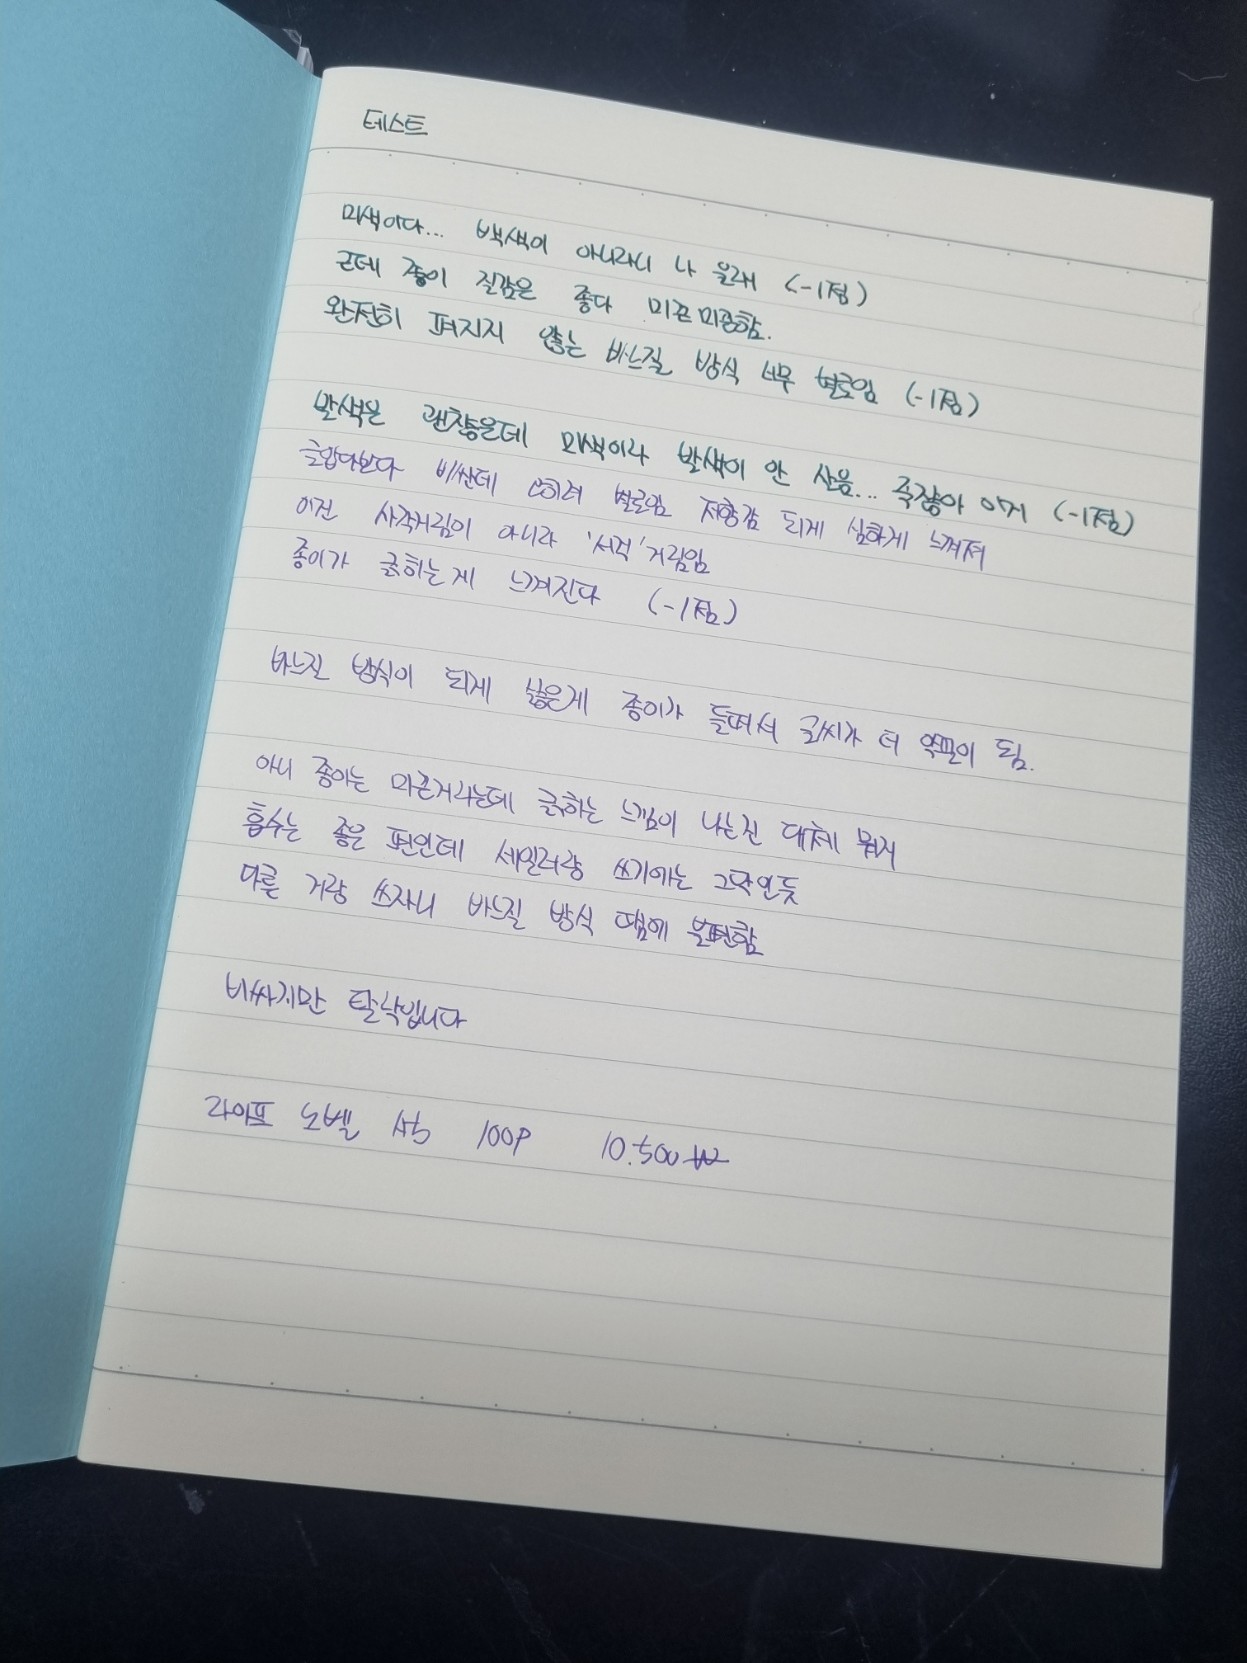 테스트
미색이다... 백색이 아니라니 나 울래 (-1점)
근데 종이 질감은 좋다 미끈미끈함.
완전히 펴지지 않는 바느질 방식 너무 별로임 (-1점)
발색은 괜찮은데 미색이라 발색이 안 삶음... 속장아 이게 (-1점)
로얄다보다 비싼데 오히려 별로임 저항감 되게 심하게 느껴져
이건 사각거림이 아니라 '서걱'거림임
종이가 긁히는게 느껴진다 (-1점)
바느질 방식이 되게 싫은게 종이가 들떠서 글씨가 더 악필이 됨.
아니 종이는 미끈거리는데 긁히는 느낌이 나는건 대체 뭐지
흡수는 좋은 편인데 세일러랑 쓰기에는 그닥인듯
다른 거랑 쓰자니 바느질 방식 땜에 불편함
비싸지만 탈락입니다
라이프 노벨 A5 100P 10.500₩